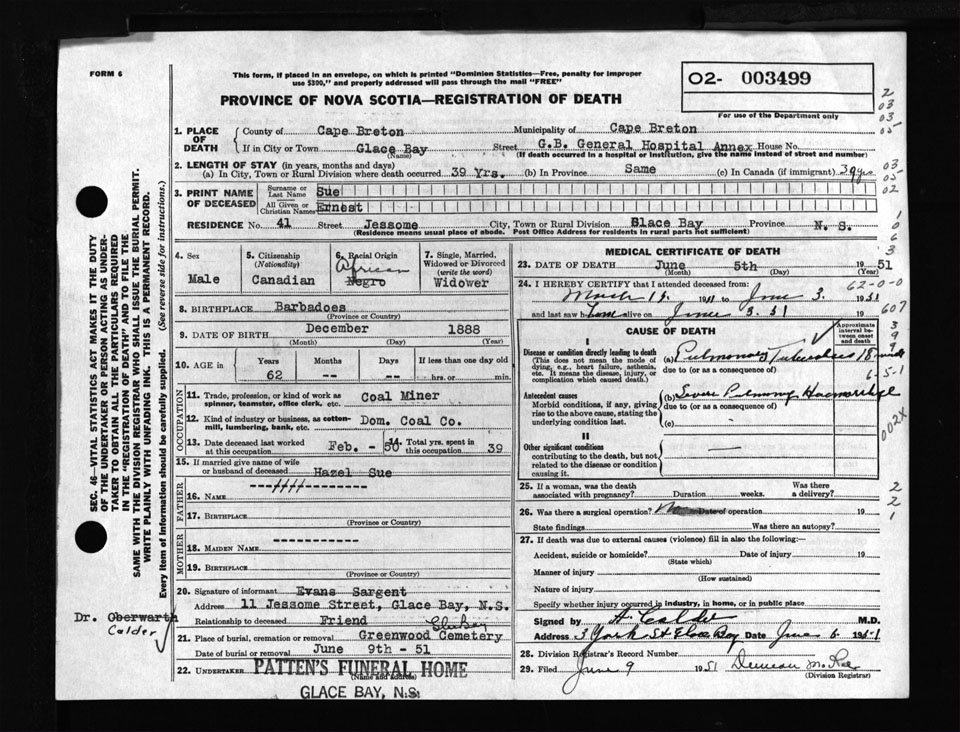 FORM 6
This form, if placed in an envelope, on which is printed "Dominion Statistics—Free, penalty for improper
use $300," and properly addressed will pass through the mail "FREE"
O2- 003499
For use of the Department only
PROVINCE OF NOVA SCOTIA—REGISTRATION OF DEATH
1. PLACE OF DEATH
County of Cape Breton Municipality of Cape Breton
If in City or Town Glace Bay Street G.B. General Hospital Annex House No.
(Name) (If death occurred in a hospital or institution, give the name instead of street and number)
2. LENGTH OF STAY (in years, months and days)
(a) In City, Town or Rural Division where death occurred 39 Yrs. (b) In Province Same (c) In Canada (if immigrant) 39 yrs
3. PRINT NAME OF DECEASED
Surname or Last Name Sue
All Given or Christian Names Ernest
RESIDENCE No. 41 Street Jessome City, Town or Rural Division Blace Bay Province N. S.
(Residence means usual place of abode. Post Office Address for residents in rural parts not sufficient)
4. Sex
Male
5. Citizenship (Nationality)
Canadian
6. Racial Origin
African
Negro
7. Single, Married, Widowed or Divorced (write the word)
Widower
8. BIRTHPLACE Barbadoes
(Province or Country)
9. DATE OF BIRTH December 1888
(Month) (Day) (Year)
10. AGE in Years Months Days If less than one day old
62 -- -- hrs. or min.
OCCUPATION
11. Trade, profession, or kind of work as spinner, teamster, office clerk, etc. Coal Miner
12. Kind of industry or business, as cotton-mill, lumbering, bank, etc. Dom. Coal Co.
13. Date deceased last worked at this occupation Feb. - 50 14. Total yrs. spent in this occupation 39
15. If married give name of wife or husband of deceased Hazel Sue
FATHER
16. NAME
17. BIRTHPLACE
(Province or Country)
MOTHER
18. MAIDEN NAME
19. BIRTHPLACE
(Province or Country)
20. Signature of informant Evans Sargent
Address 11 Jessome Street, Glace Bay, N.S.
Relationship to deceased Friend
21. Place of burial, cremation or removal Greenwood Cemetery Glace Bay
Date of burial or removal June 9th - 51
22. UNDERTAKER PATTEN'S FUNERAL HOME
(Name and address)
GLACE BAY, N.S.
MEDICAL CERTIFICATE OF DEATH
23. DATE OF DEATH June 5th 1951
(Month) (Day) (Year)
24. I HEREBY CERTIFY that I attended deceased from: 62-0-0
March 1951 to June 3. 1951
and last saw him alive on June 3. 51
607
CAUSE OF DEATH
Approximate interval between onset and death
I
Disease or condition directly leading to death
(This does not mean the mode of dying, e.g., heart failure, asthenia, etc. It means the disease, injury, or complication which caused death.)
(a) Pulmonary Tuberculosis 18
due to (or as a consequence of)
6-5-1
Antecedent causes
Morbid conditions, if any, giving rise to the above cause, stating the underlying condition last.
(b) Severe Pulmonary Haemorrhage
due to (or as a consequence of)
(c)
002X
II
Other significant conditions
contributing to the death, but not related to the disease or condition causing it.
25. If a woman, was the death associated with pregnancy? Duration weeks. Was there a delivery?
26. Was there a surgical operation? No Date of operation 19
State findings Was there an autopsy?
27. If death was due to external causes (violence) fill in also the following:—
Accident, suicide or homicide? Date of injury 19
(State which)
Manner of injury
(How sustained)
Nature of injury
Specify whether injury occurred in industry, in home, or in public place
Signed by A. Calder M.D.
Address 3 York St Glace Bay Date June 6 1951
28. Division Registrar's Record Number
29. Filed June 9 1951
(Division Registrar)
SEC. 46—VITAL STATISTICS ACT MAKES IT THE DUTY
OF THE UNDERTAKER OR PERSON ACTING AS UNDER-
TAKER TO OBTAIN ALL THE PARTICULARS REQUIRED
IN THE "REGISTRATION OF DEATH" AND TO FILE THE
SAME WITH THE DIVISION REGISTRAR WHO SHALL ISSUE THE BURIAL PERMIT.
WRITE PLAINLY WITH UNFADING INK. THIS IS A PERMANENT RECORD.
Every item of information should be carefully supplied. (See reverse side for instructions.)
Dr. Oberwarth
Calder
2
03
03
05
03
05
02
1
0
6
3
3
9
9
2
2
1